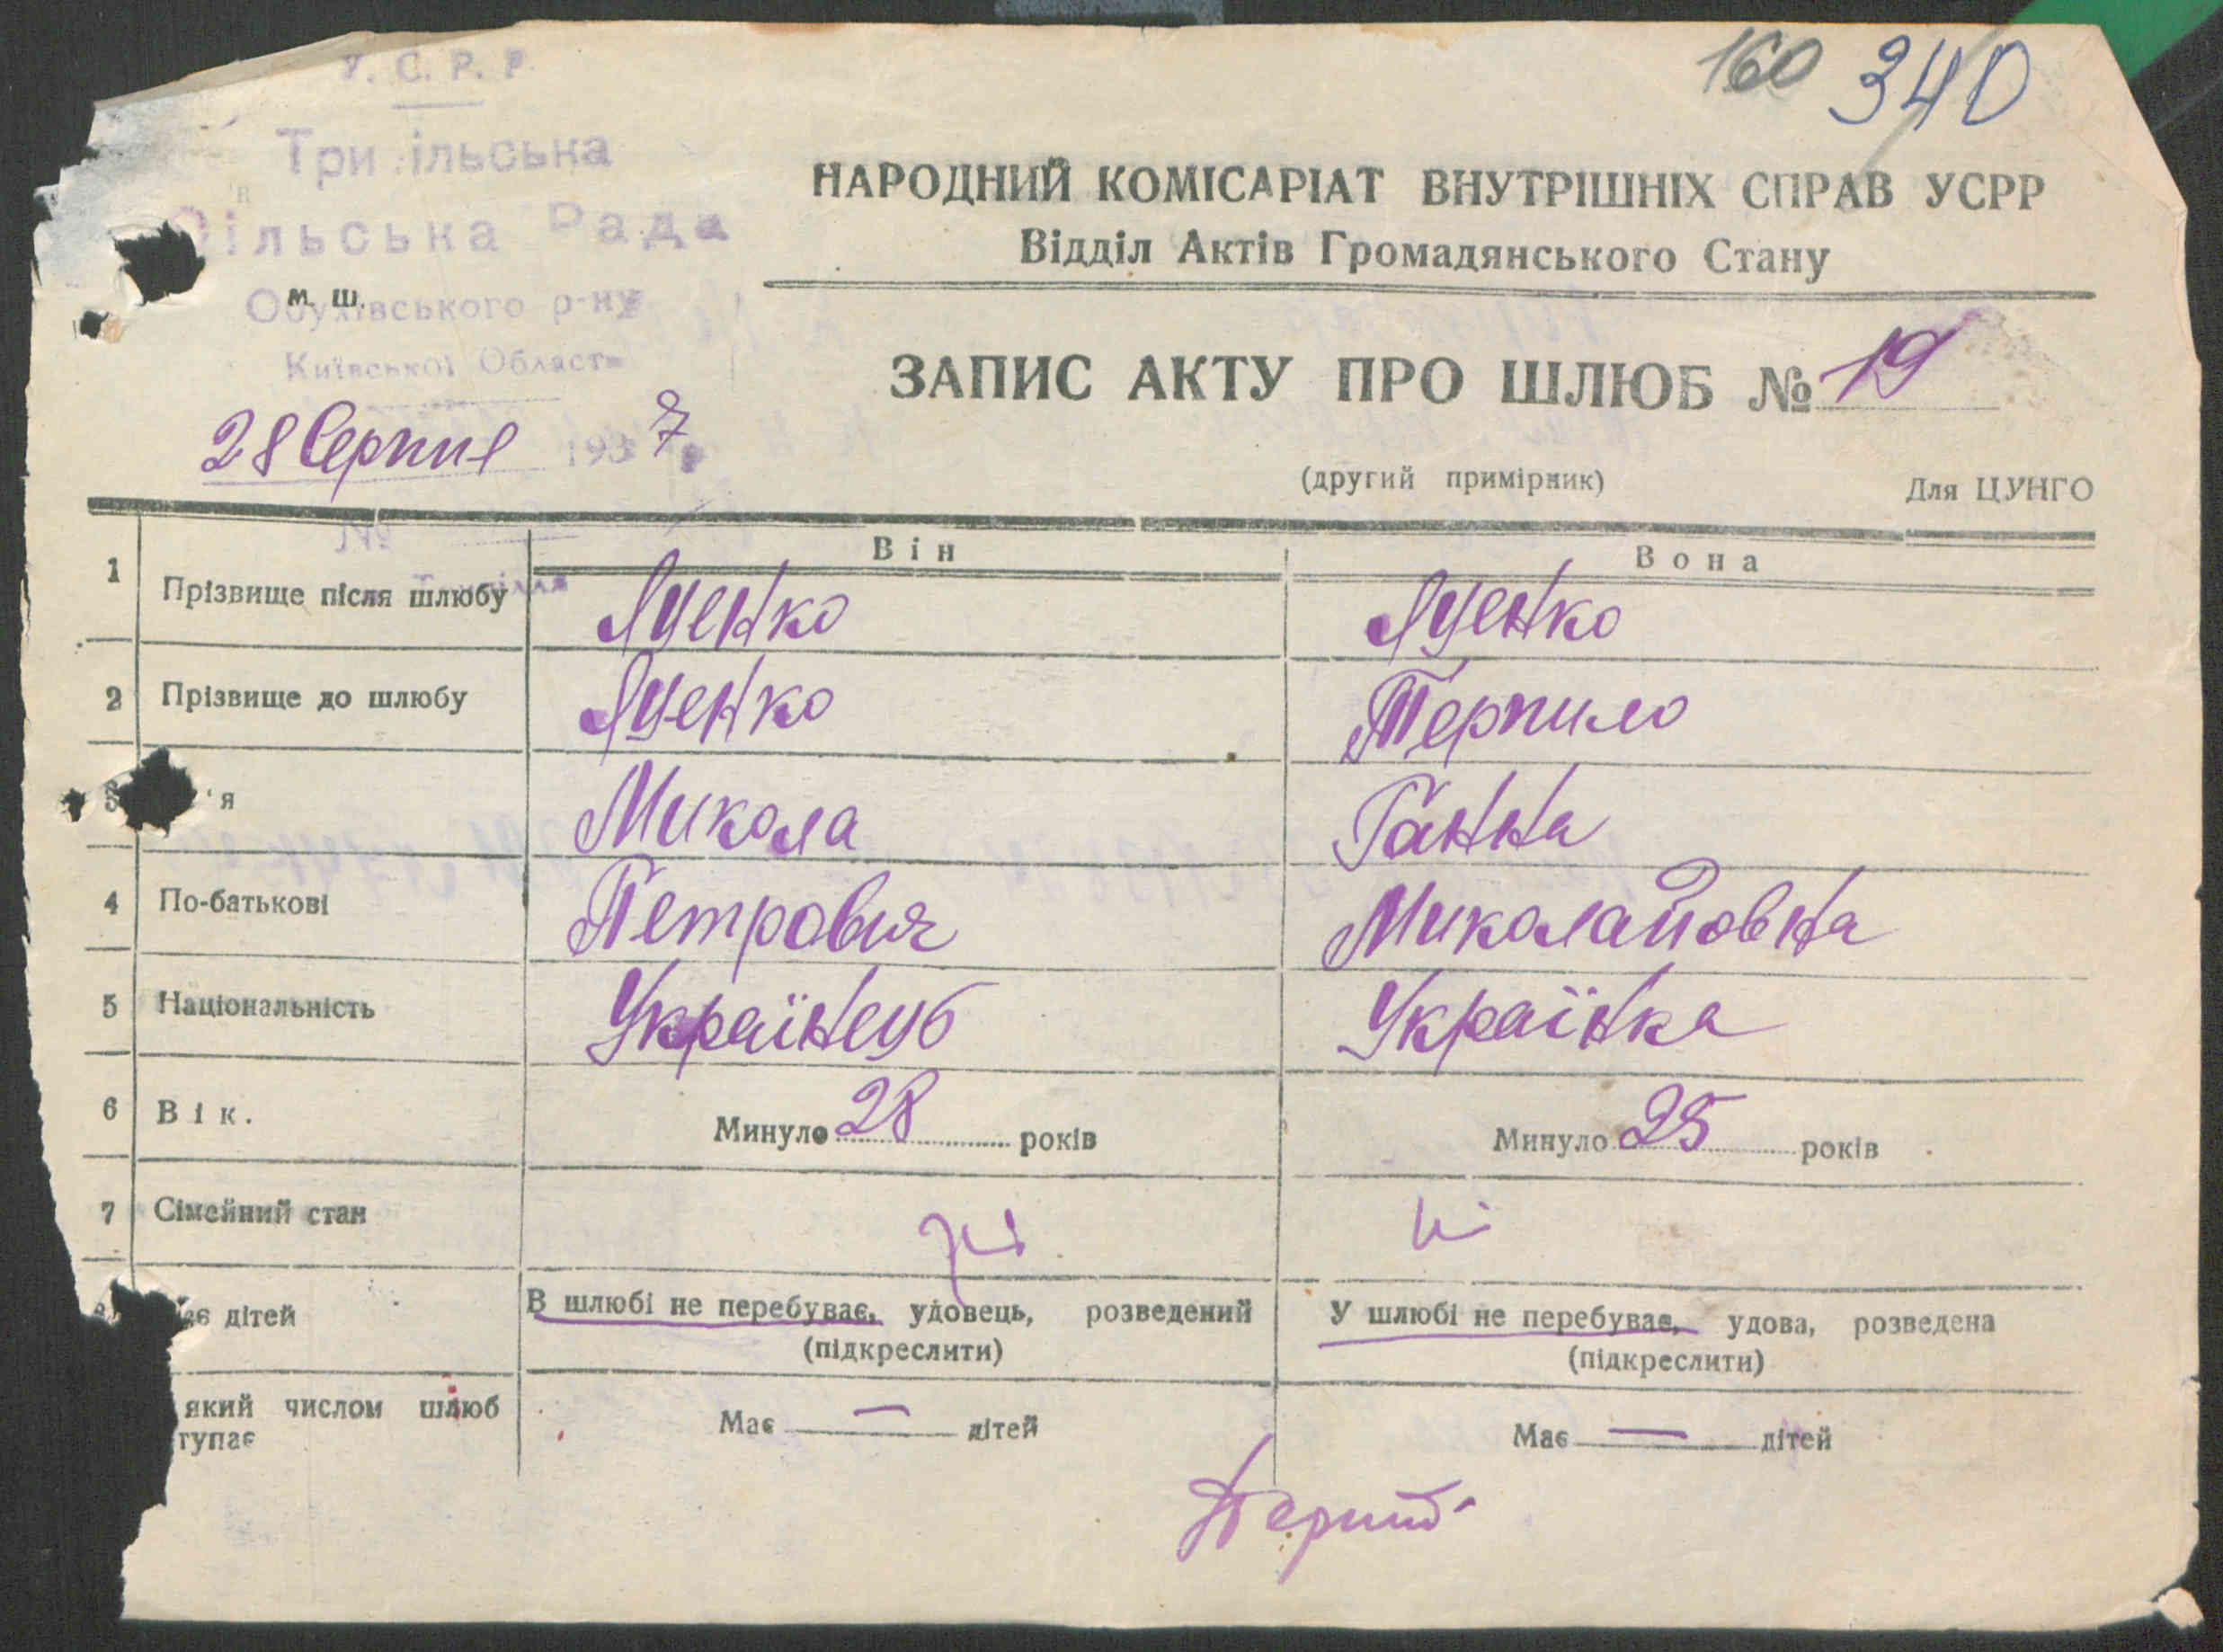 160 340
У. С. Р. Р.
Три ільська
Сільська Рада
м. ш.
Обухівського р-ну
Київської Області
28 Серпня 1937 р
№
НАРОДНИЙ КОМІСАРІАТ ВНУТРІШНІХ СПРАВ УСРР
Відділ Актів Громадянського Стану
ЗАПИС АКТУ ПРО ШЛЮБ № 19
(другий примірник) Для ЦУНГО
Він Вона
1 Прізвище після шлюбу Яценко Яценко
2 Прізвище до шлюбу Яценко Терпило
3 'я Микола Ганна
4 По-батькові Петрович Миколайовна
5 Національність Українець Українка
6 Вік. Минуло 28 років Минуло 25 років
7 Сімейний стан ні ні
дітей В шлюбі не перебуває, удовець, розведений У шлюбі не перебуває, удова, розведена
(підкреслити) (підкреслити)
який числом шлюб
тупає Має — дітей Має — дітей